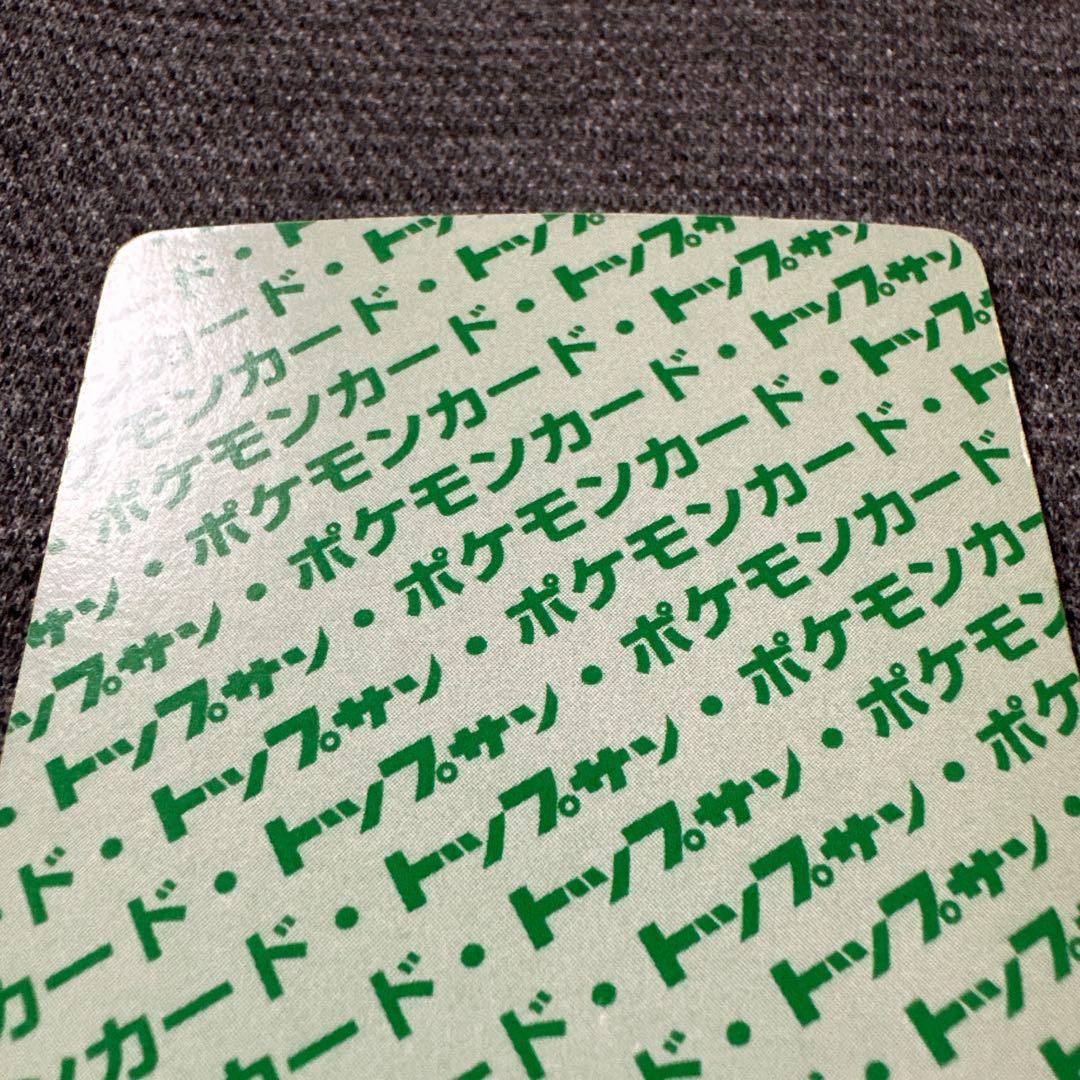 ド・ト
カード・トッ
モンカード・トップ
ポケモンカード・トップサ
サン・ポケモンカード・トップサン
ップサン・ポケモンカード・トップサン
・トップサン・ポケモンカード・トップサ
ド・トップサン・ポケモンカード・ト
カード・トップサン・ポケモンカード
ンカード・トップサン・ポケモンカー
カード・トップサン・ポケモン
ド・トップサン・ポケ
ド・トップサン・
・トップ
ト